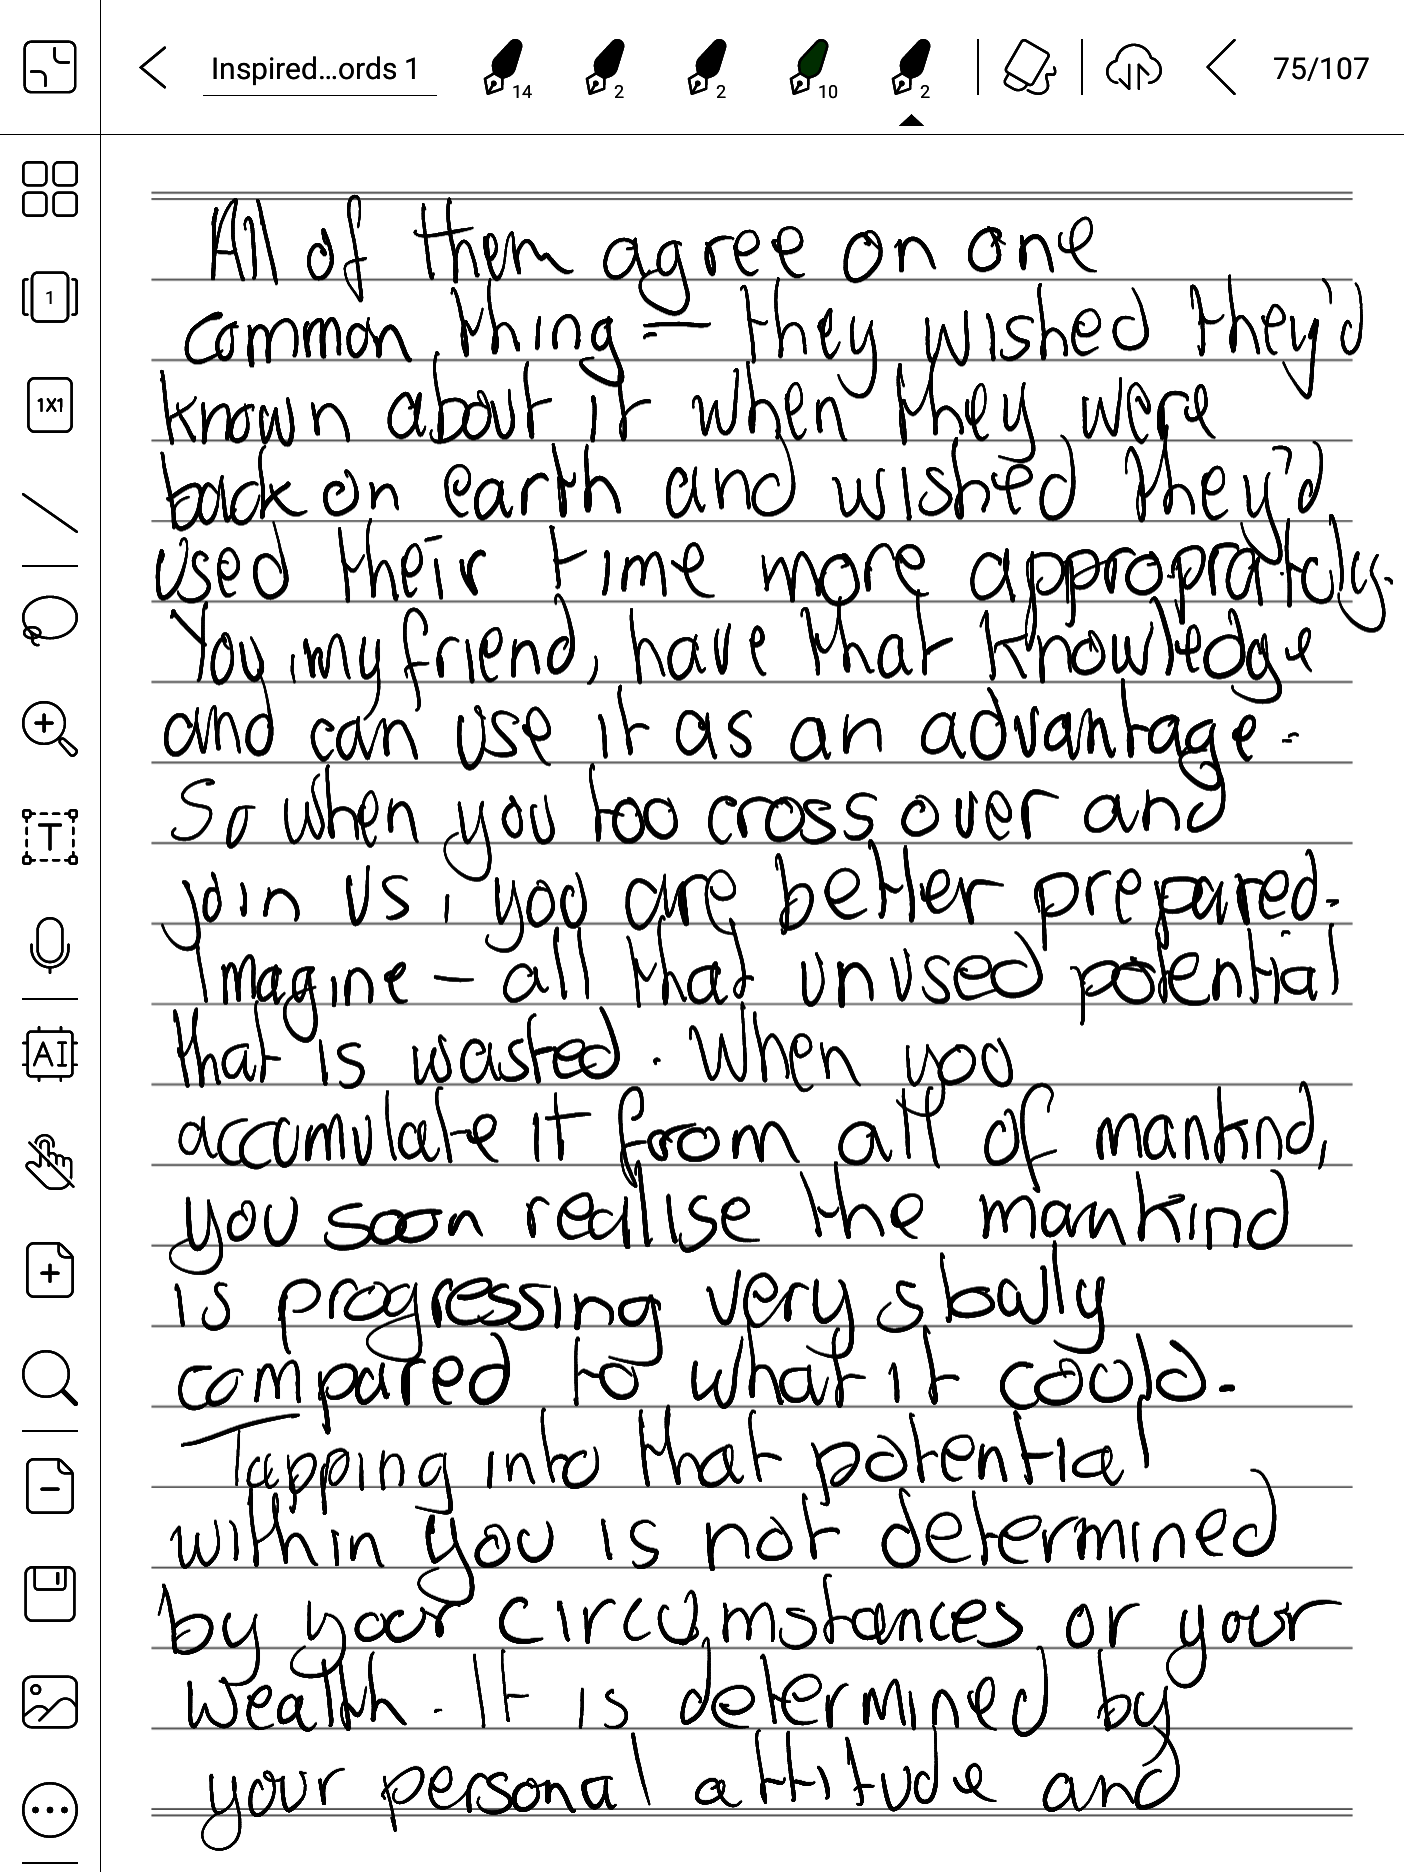 Inspired...ords 1
14
2
2
10
2
75/107
1
1X1
T
AI
All of them agree on one
common thing - they wished they'd
known about it when they were
back on earth and wished they'd
used their time more
You, my friend, have that knowledge
and can use it as an advantage.
So when you too cross over and
join us, you are better prepared.
Imagine - all that unused potential
that is wasted. When you
accumulate it from all of manknd,
you soon realise the mankind
is progressing very
compared to what it could.
Tapping into that potential
within you is not determined
by your circumstances or your
wealth. It is determined by
your personal attitude and